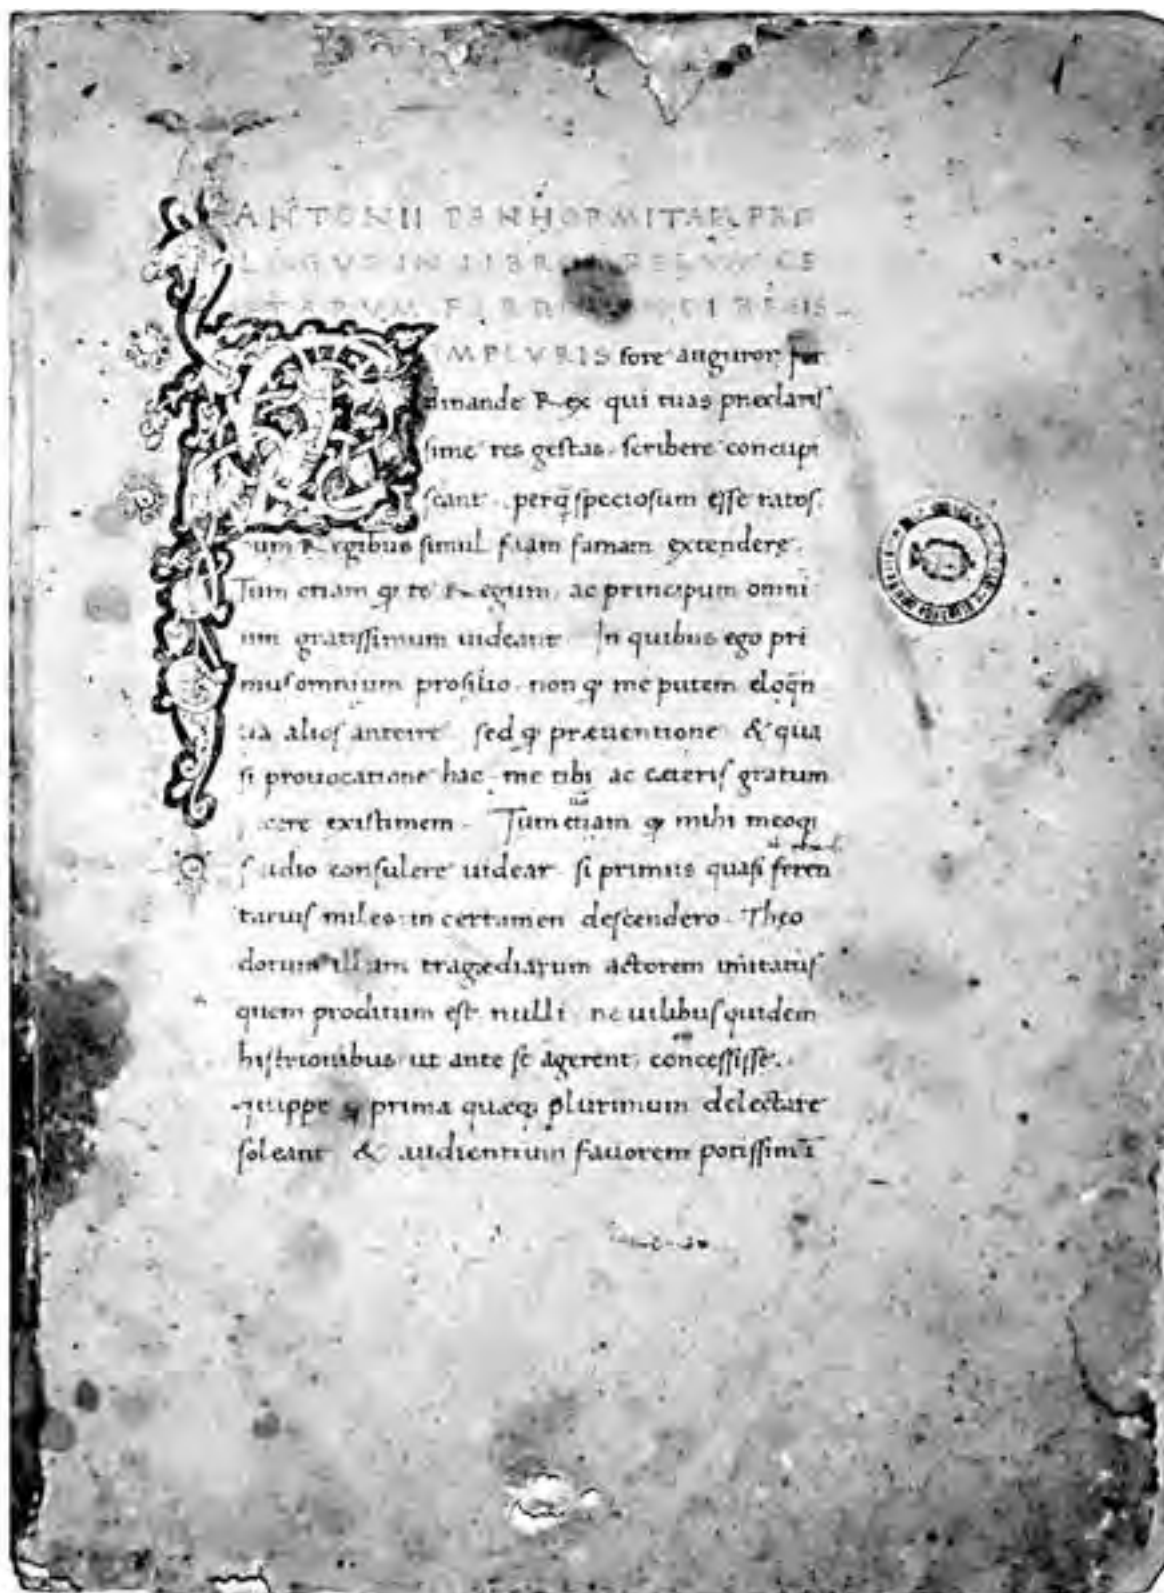 ANTONII PANHORMITAE PRO
LOGVS IN LIBRVM RERVM GE
STARVM FERDINANDI REGIS
MPLVRIS fore auguror fer
dinande Rex qui tuas præclaris
sime res gestas scribere concupi
scant perq̄ speciosum esse ratos
cum Regibus simul suam famam extendere.
Tum etiam ꝙ te Regum, ac principum omni
um gratissimum uideant In quibus ego pri
mus omnium prosilio non ꝙ me putem eloqn̄
tia alios anteire sed ꝙ præuentione & qua
si prouocatione hac me tibi ac cæteris gratum
existimem. Tum etiam ꝙ mihi meoq;
studio consulere uidear si primus quasi feren
tarius miles in certamen descendero. Theo
dorum illum tragædiarum actorem imitatus
quem proditum est nulli ne uilibus quidem
histrionibus ut ante se agerent concessisse.
quippe ꝙ prima quæq; plurimum delectare
soleant & audientium fauorem potissimū